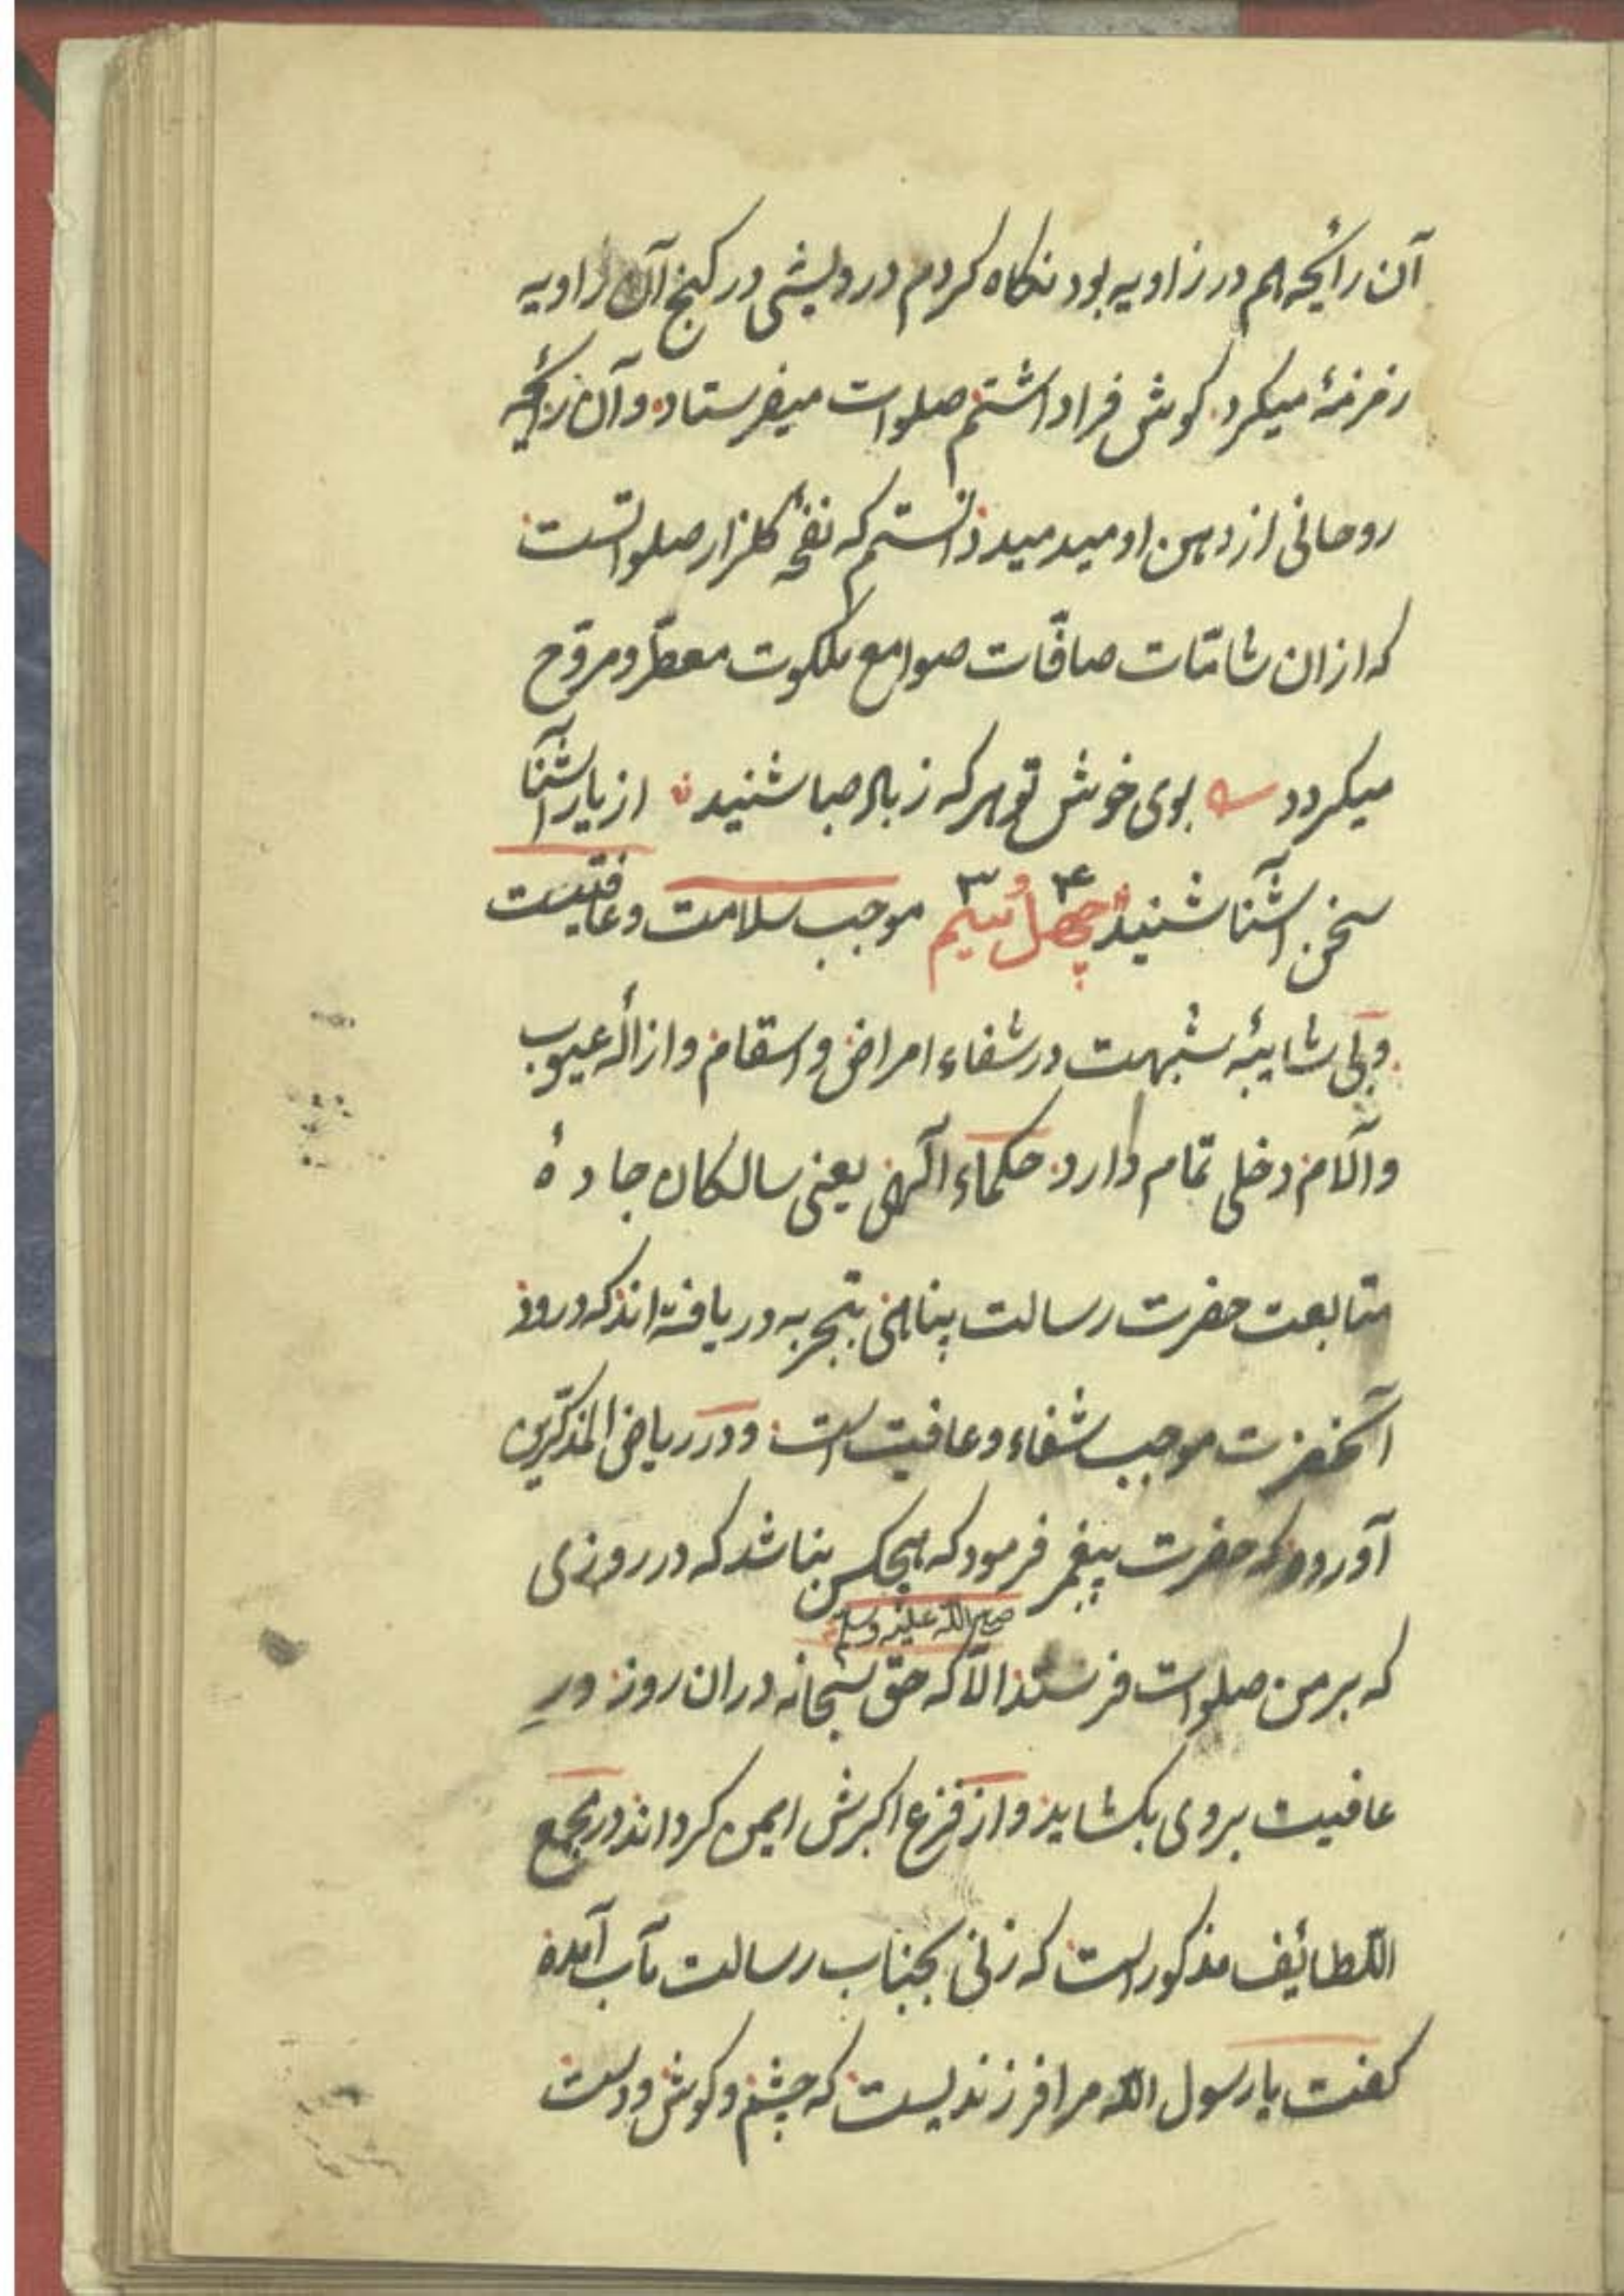 آن رائحه هم در زاویه بود نکاه کردم درویشی در کنج آن زاویه
زمزمهٔ میکرد کوش فرا داشتم صلوات میفرستاد و آن رائحه
روحانی از دهن او میدمید دانستم که نفحهٔ کلزار صلواتست
که ازان شامّات صافّات صوامع ملکوت معطّر و مروّح
میکردد بوی خوش تو هر که ز باد صبا شنید از یار آشنا
سخن آشنا شنید چهل و سیم ۴ ۳ موجب سلامت و عافیتست
و بی شایبهٔ شبهت در شفاء امراض و اسقام و ازالهٔ عیوب
و آلام دخلی تمام دارد حکماء آلهی یعنی سالکان جادهٔ
متابعت حضرت رسالت پناهی بتجربه دریافته‌اند که درود
آنحضرت موجب شفاء و عافیت است و در ریاض المذکّرین
آورده که حضرت پیغمبر فرمود که هیچکس نباشد که در روزی
صلی الله علیه وسلم
که بر من صلوات فرستد الّا که حق سبحانه دران روز درِ
عافیت بروی بکشاید و از فزع اکبرش ایمن کرداند در مجمع
اللطائف مذکور است که زنی بجناب رسالت مآب آمده
کفت یا رسول الله مرا فرزندیست که چشم و کوش و دست